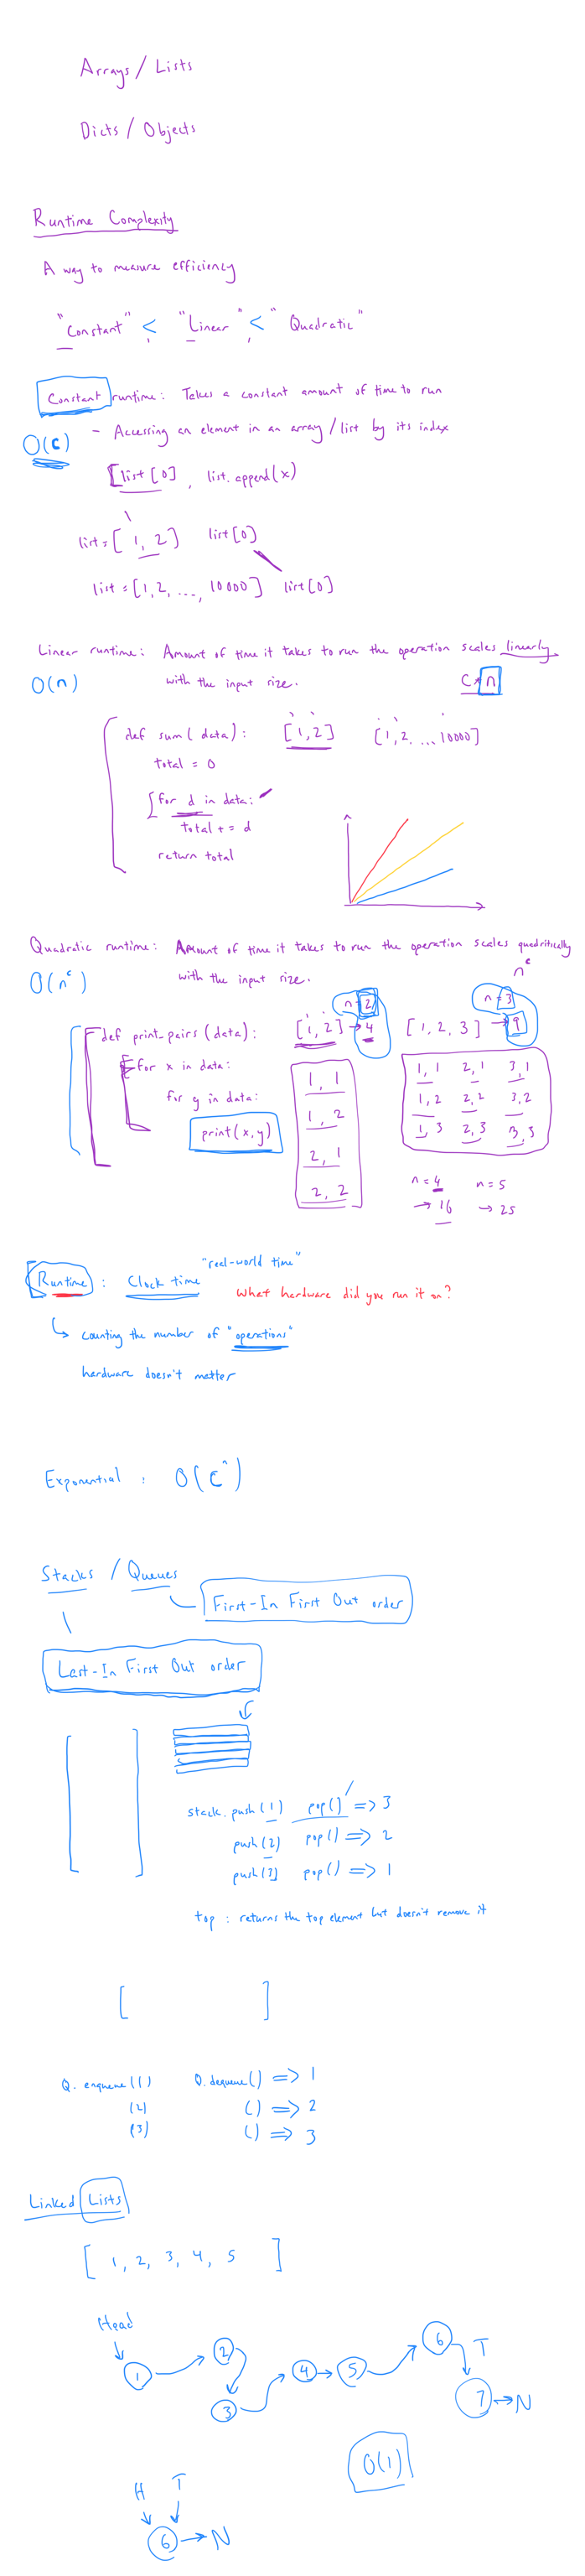 Arrays / Lists
Dicts / Objects
Runtime Complexity
A way to measure efficiency
"Constant" < "Linear" < "Quadratic"
Constant runtime: Takes a constant amount of time to run
O(c) - Accessing an element in an array / list by its index
[list[0], list.append(x)
list = [1, 2] list[0]
list = [1, 2, ..., 10000] list[0]
Linear runtime: Amount of time it takes to run the operation scales linearly
O(n) with the input size. C*n
def sum(data): [1, 2] [1, 2, ... 10000]
total = 0
for d in data:
total += d
return total
Quadratic runtime: Amount of time it takes to run the operation scales quadritically
O(n^c) with the input size. n^c
n=2 n=3
def print_pairs(data): [1, 2] → 4 [1, 2, 3] → 9
for x in data:
for y in data:
print(x,y)
1, 1
1, 2
2, 1
2, 2
1, 1 2, 1 3, 1
1, 2 2, 2 3, 2
1, 3 2, 3 3, 3
n=4 n=5
→ 16 → 25
"real-world time"
Runtime: Clock time What hardware did you run it on?
↳ counting the number of "operations"
hardware doesn't matter
Exponential: O(c^n)
Stacks / Queues
First-In First Out order
Last-In First Out order
stack.push(1) pop() => 3
push(2) pop() => 2
push(3) pop() => 1
top: returns the top element but doesn't remove it
[ ]
Q.enqueue(1) Q.dequeue() => 1
(2) () => 2
(3) () => 3
Linked Lists
[1, 2, 3, 4, 5 ]
Head
1 → 2 → 3 → 4 → 5 → 6 → 7 → N
T
O(1)
H T
6 → N